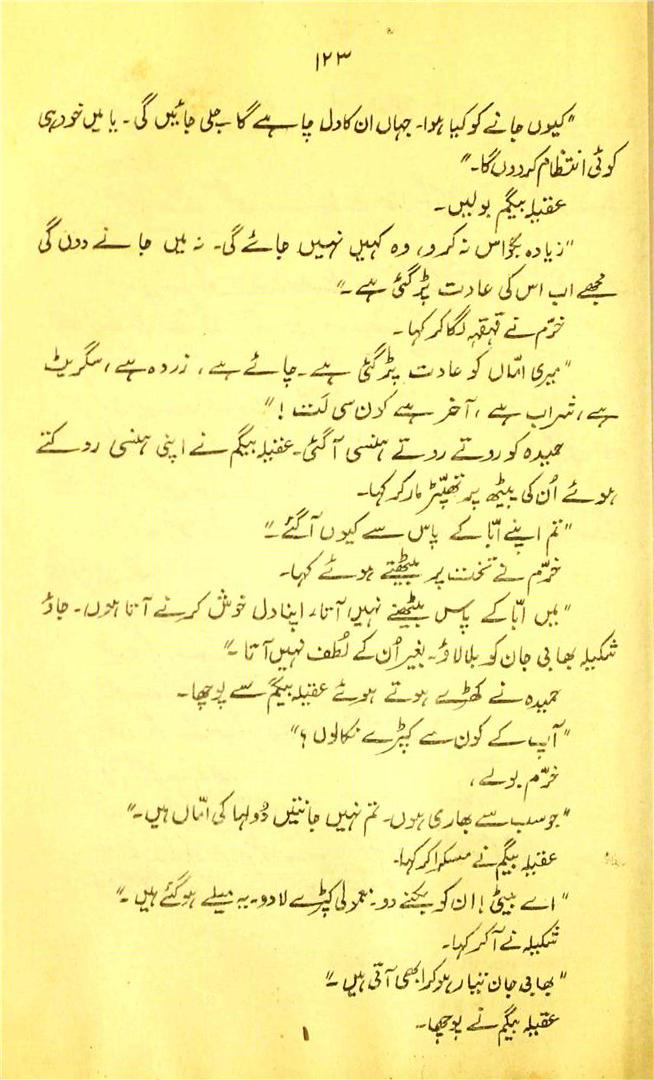 ۱۲۳
"کیوں جانے کو کیا ہوا۔ جہاں ان کا دل چاہے گا چلی جائیں گی۔ یا میں خود ہی
کوئی انتظام کر دوں گا۔"
عقیلہ بیگم بولیں۔
"زیادہ بکواس نہ کرو، وہ کہیں نہیں جائے گی۔ نہ میں جانے دوں گی
مجھے اب اس کی عادت پڑ گئی ہے۔"
خرّم نے قہقہہ لگا کر کہا۔
"میری امّاں کو عادت پڑ گئی ہے۔ چائے ہے، زردہ ہے، سگریٹ
ہے، شراب ہے، آخر ہے کون سی لَت!"
حمیدہ کو روتے روتے ہنسی آ گئی۔ عقیلہ بیگم نے اپنی ہنسی روکتے
ہوئے اُن کی پیٹھ پر تھپّڑ مار کر کہا۔
"تم اپنے ابّا کے پاس سے کیوں آ گئے۔"
خرّم نے تخت پر بیٹھتے ہوئے کہا۔
"میں ابّا کے پاس بیٹھنے نہیں آتا، اپنا دل خوش کرنے آتا ہوں۔ جاؤ
شکیلہ بھابی جان کو بلا لاؤ۔ بغیر اُن کے لُطف نہیں آتا۔"
حمیدہ نے کھڑے ہوتے ہوئے عقیلہ بیگم سے پوچھا۔
"آپ کے کون سے کپڑے نکالوں؟"
خرّم بولے،
"جو سب سے بھاری ہوں۔ تم نہیں جانتیں دُولہا کی امّاں ہیں۔"
عقیلہ بیگم نے مسکرا کر کہا۔
"اے بیٹی! ان کو بکنے دو۔ معمولی کپڑے لا دو۔ یہ میلے ہو گئے ہیں۔"
شکیلہ نے آ کر کہا۔
"بھابی جان تیار ہو کر ابھی آتی ہیں۔"
عقیلہ بیگم نے پوچھا۔